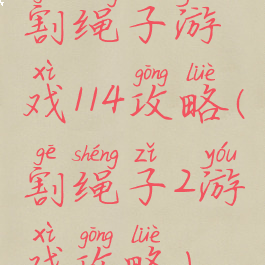 割绳子游
xì gōng lüè
戏114攻略(
gē shéng zǐ yóu
割绳子2游
xì gōng lüè
戏攻略)